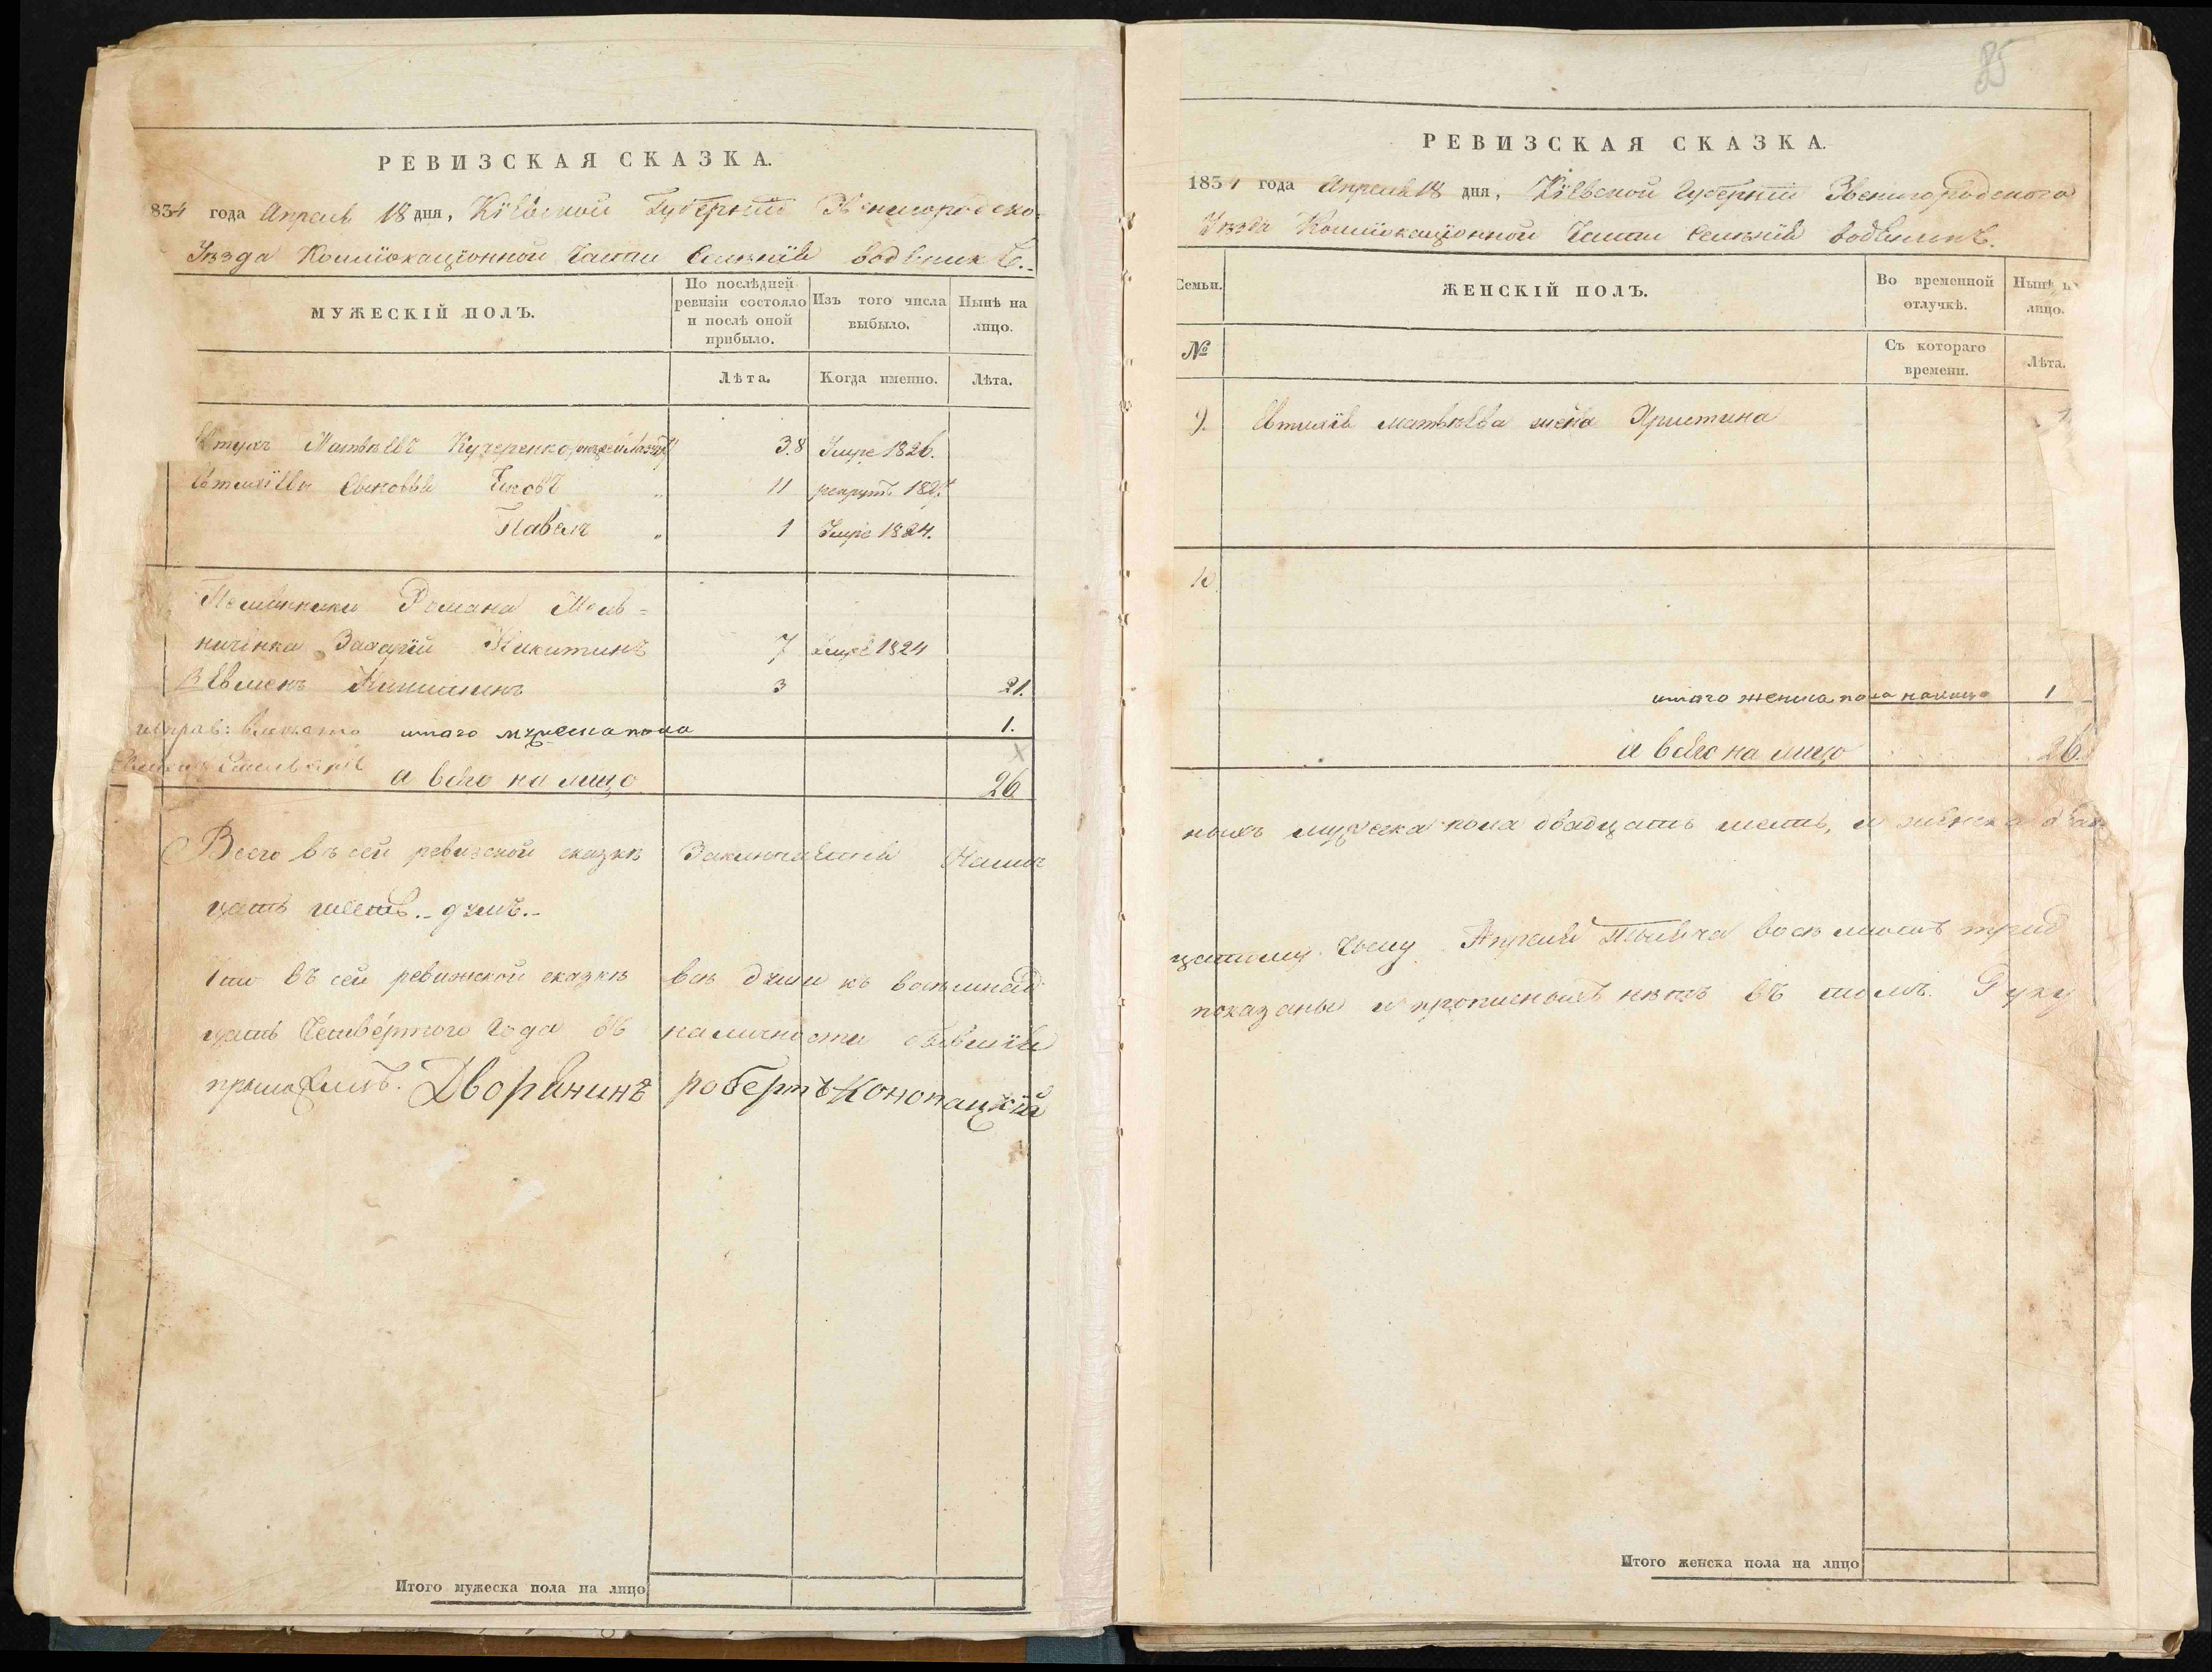 РЕВИЗСКАЯ СКАЗКА.
834 года Апреля 18 дня, Кіевской Губерніи Звенигородско-
Уѣзда Коллиокаціонной Части Селенія водяник
МУЖЕСКІЙ ПОЛЪ.
По послѣдней ревизіи состояло и послѣ оной прибыло.
Изъ того числа выбыло.
Нынѣ на лицо.
Лѣта.
Когда именно.
Лѣта.
Матвѣевъ Кучеренко 38 Умре 1826.
Сыновья 11 рекрутъ 182
Павелъ " 1 Умре 1824.
Племянники Романа Мель=
ниченка Захарій Никитинъ 7 умре 1824
Евменъ 3 21.
итого мужеска пола 1.
а всего на лицо 26
Всего въ сей ревизской сказкѣ Заключается Налич
цать шесть. душъ.
Что въ сей ревижской сказкѣ всѣ души къ восемнад
цать Четвертого Года въ наличности
приложилъ. Дворянинъ робертъ Конопацкій
Итого мужеска пола на лицо
85
РЕВИЗСКАЯ СКАЗКА.
1834 года Апреля 18 дня, Кіевской Губерніи Звенигородского
Уѣзда Коллиокаціонной Части Селенія
Семьи.
ЖЕНСКІЙ ПОЛЪ.
Во временной отлучкѣ.
Нынѣ на лицо.
№
Съ котораго времени.
Лѣта.
9. Евтихія Матвѣева жена Христина
10
итого женска пола налицо 1
а всего на лицо 26.
ныхъ мужеска пола двадцать шесть, и женска два
цатому Числу Апреля Тысяча восемьсотъ трид
показаны и прописныхъ нѣтъ въ томъ Руку
Итого женска пола на лицо